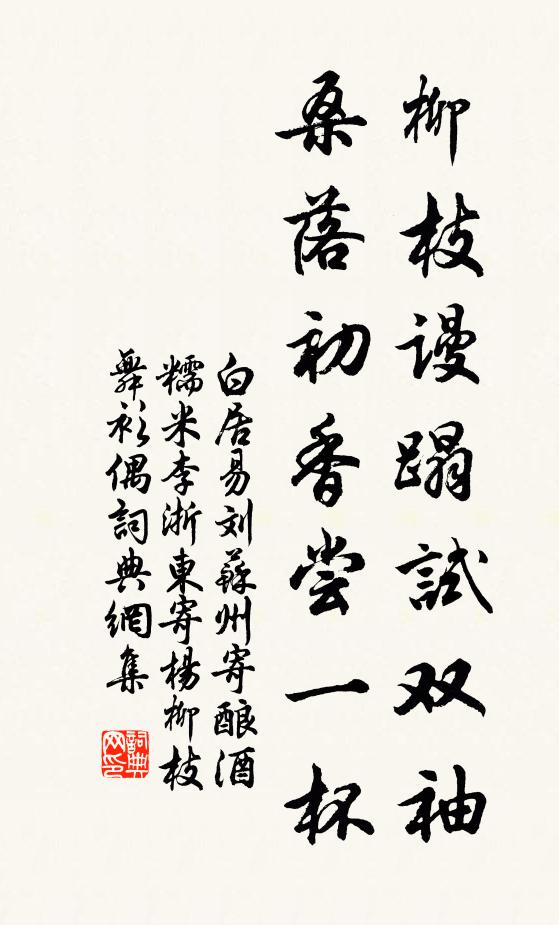 柳枝谩蹋試双袖
桑落初香尝一杯
白居易刘蘇州寄酿酒
糯米李浙東寄楊柳枝
舞衫偶詞典網集
詞典
网印